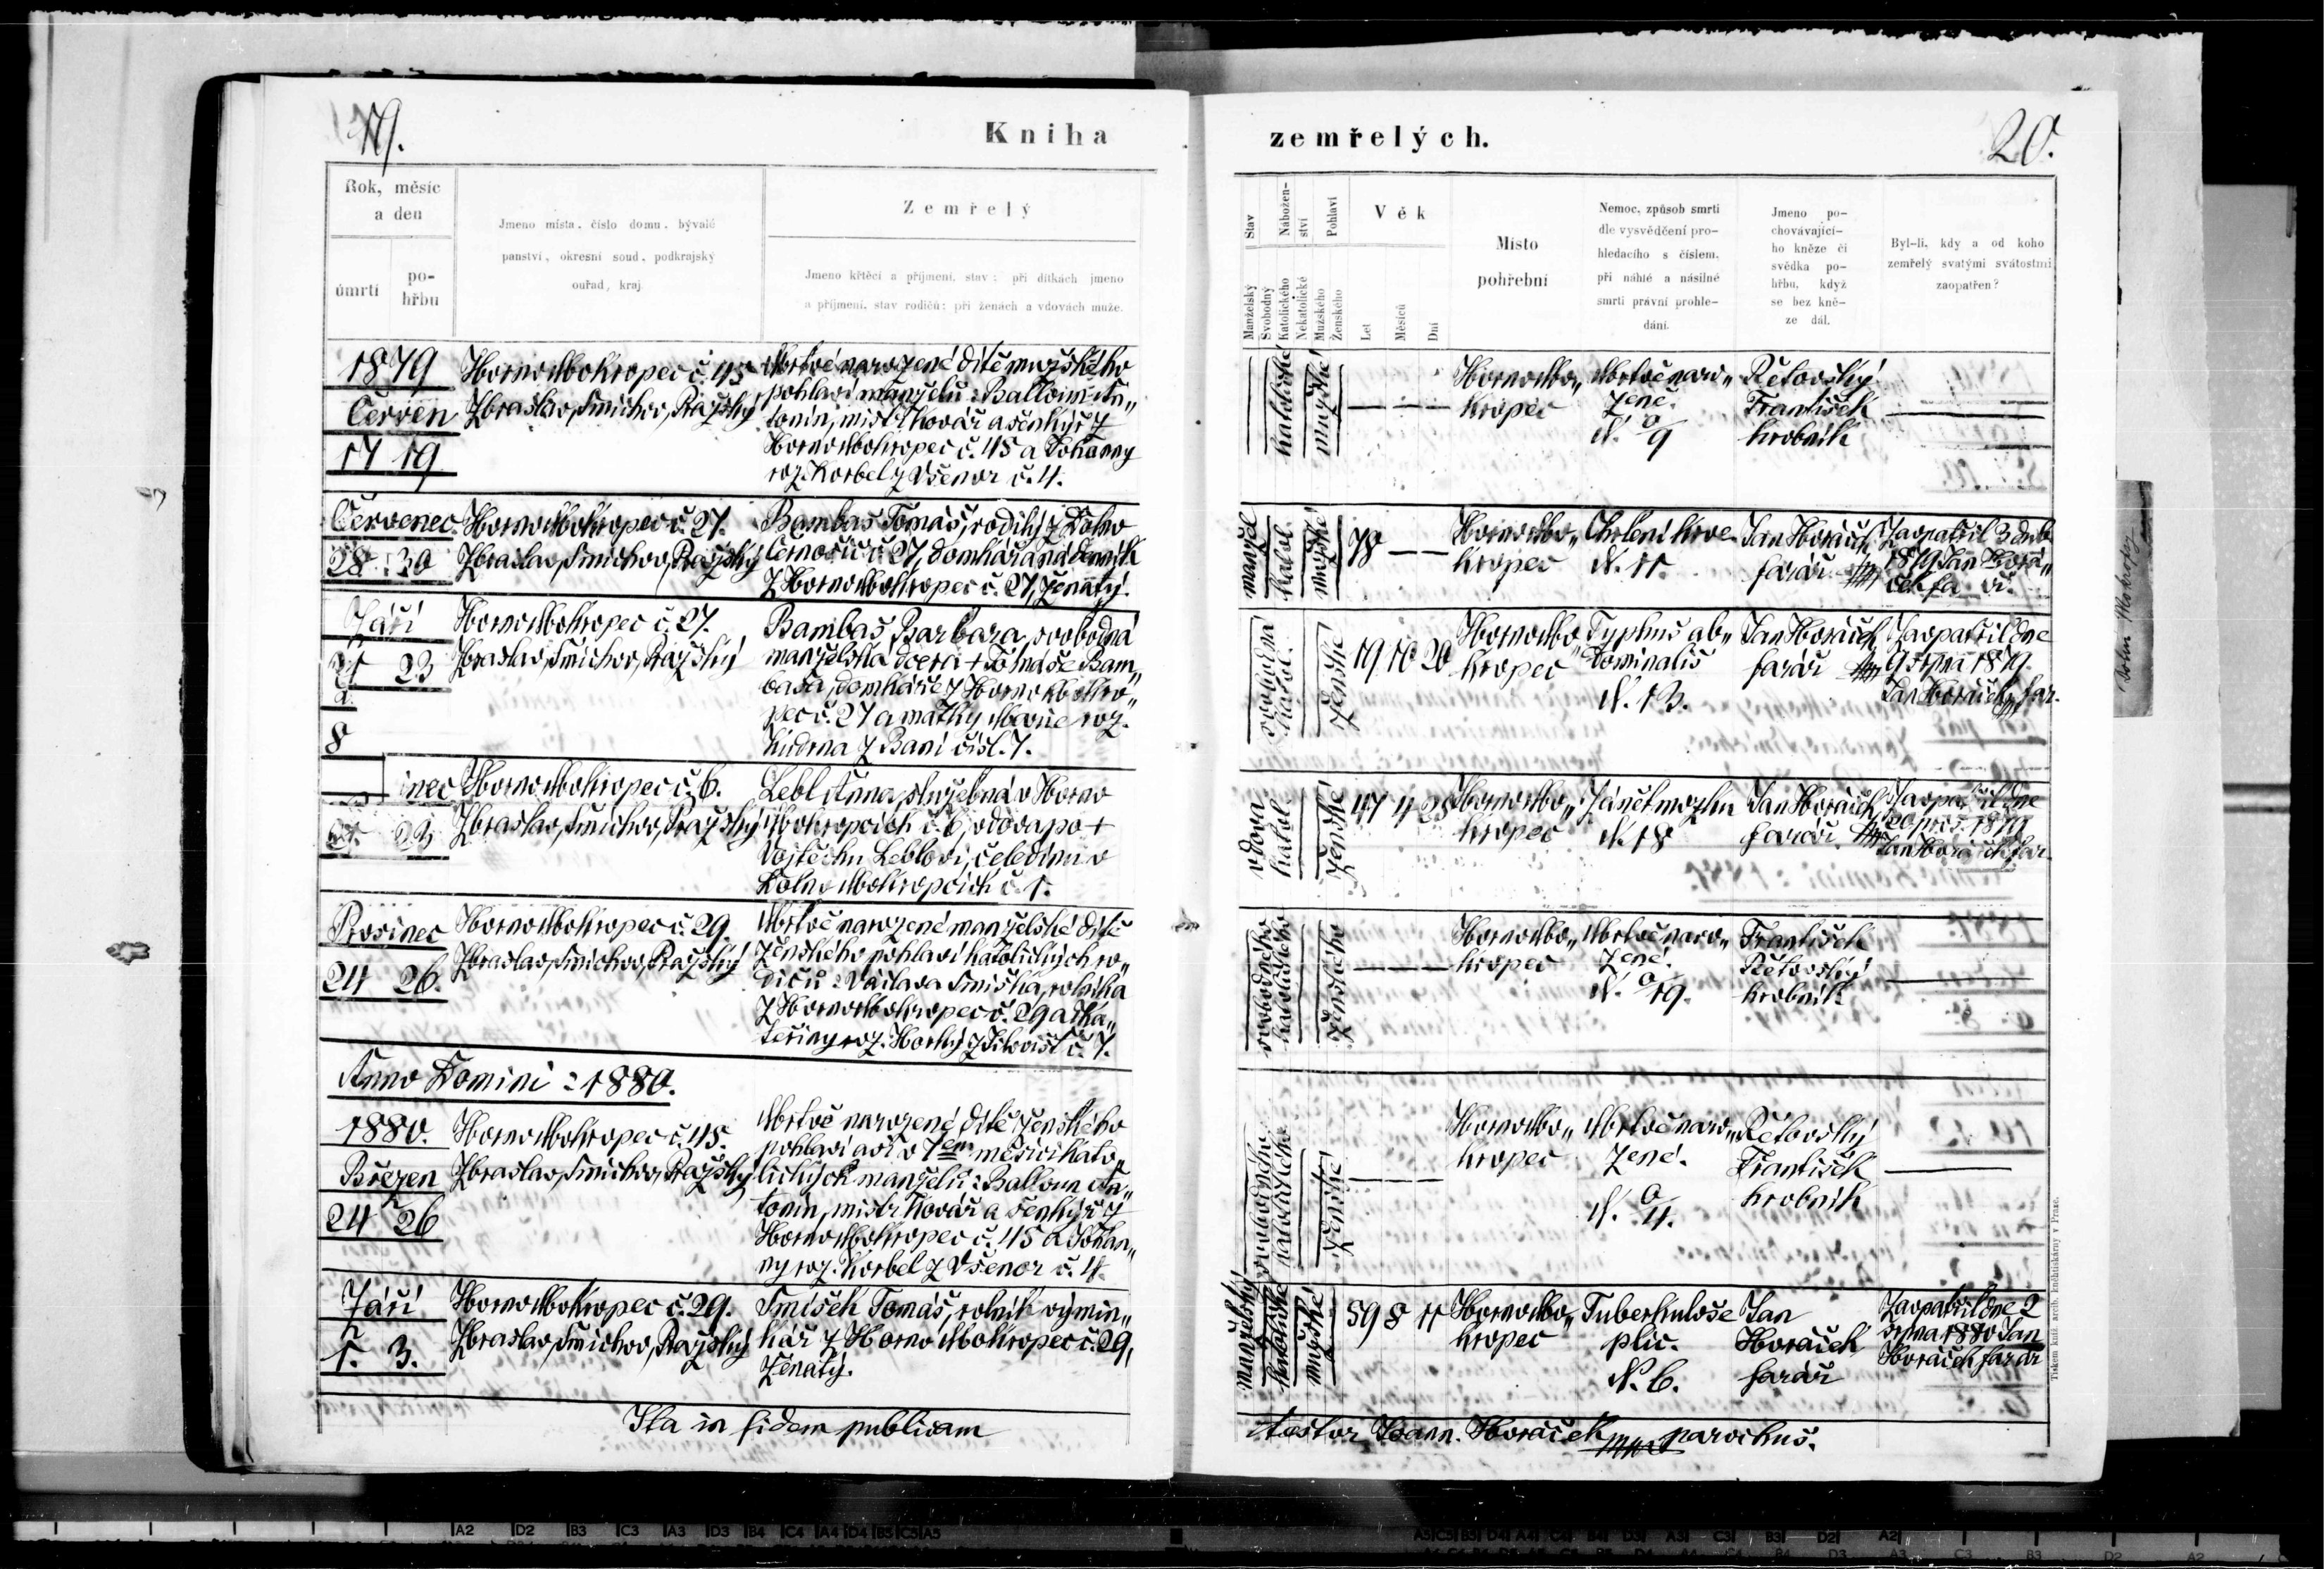 Kniha
zemřelých.
20.
Rok, měsíc
a den
úmrtí
po-
hřbu
Jmeno místa, číslo domu, bývalé
panství, okresní soud, podkrajský
ouřad, kraj.
Zemřelý
Jmeno křtěcí a příjmení, stav; při dítkách jmeno
a příjmení, stav rodičů; při ženách a vdovách muže.
Stav
Manželský
Svobodný
Nábožen-
ství
Katolického
Nekatolické
Pohlaví
Mužského
Ženského
Věk
Let
Měsíců
Dní
Místo
pohřební
Nemoc, způsob smrti
dle vysvědčení pro-
hledacího s číslem,
při náhlé a násilné
smrti právní prohle-
dání.
Jmeno po-
chovávající-
ho kněze či
svědka po-
hřbu, když
se bez kně-
ze dál.
Byl-li, kdy a od koho
zemřelý svatými svátostmi
zaopatřen?
1879
Červen
17 19
Horno Mokropec č. 45
Zbraslav, Smíchov, Pražský
Mrtvě narozené dítě mužského
pohlaví manželů: Balloun An„
tonín, mistr kovář a šenkýř z
Horno Mokropec č. 45 a Johanny
roz. Korbel z Všenor č. 4.
katolické
mužské
— — —
Horno Mo„
kropec
Mrtvě naro„
zené.
N. 0/9
Řetovský
František
hrobník
Červenec
28 30
Horno Mokropec č. 27.
Zbraslav, Smíchov, Pražský
Bambas Tomáš, rodilý z Dolno
Černošic č. 27, domkář a nádenník
z Horno Mokropec č. 27, ženatý.
manžel
katol.
mužské
78 — —
Horno Mo„
kropec
Chrlení krve
N. 11.
Jan Horáček
farář
Zaopatřil 3 dub.
1879 Jan Horá„
ček fa ř.
Září
21 23
8
Horno Mokropec č. 27.
Zbraslav, Smíchov, Pražský
Bambas Barbara, svobodná
manželská dcera + Tomáše Bam„
basa, domkáře z Horno Mokro„
pec č. 27 a matky Marie roz.
Kudrna z Baní čísl. 7.
svobodna
katol.
ženské
19 10 20
Horno Mo„
kropec
Typhus ab„
dominalis
N. 13.
Jan Horáček
farář
Zaopatřil dne
9 srpna 1879.
Jan Horáček far.
inec
23
Horno Mokropec č. 6.
Zbraslav, Smíchov, Pražský
Lebl Anna, služebná v Horno
Mokropcích č. 6, vdova po +
Vojtěchu Leblovi, čeledínu v
Dolno Mokropcích č. 1.
vdova
katol.
ženské
47 4 28
Horno Mo„
kropec
Zánět mozku
N. 18
Jan Horáček
farář
Zaopatřil dne
20 pros. 1879
Jan Horáček far.
Prosinec
24 26.
Horno Mokropec č. 29.
Zbraslav, Smíchov, Pražský
Mrtvě narozené manželské dítě
ženského pohlaví katolických ro„
dičů: Václava Smíška, rolníka
z Horno Mokropec č. 29 a Ka„
teřiny roz. Horký z Jíloviśt č. 7.
svobodného
katolického
ženského
— — —
Horno Mo„
kropec
Mrtvě naro„
zené.
N. 0/19.
František
Řetovský
hrobník
Anno Domini: 1880.
1880.
Březen
24 26
Horno Mokropec č. 45.
Zbraslav, Smíchov, Pražský
Mrtvě narozené dítě ženského
pohlaví asi v 7em měsíci kato„
lických manželů: Balloun An„
tonín, mistr kovář a šenkýř z
Horno Mokropec č. 45 a Johan„
ny roz. Korbel z Všenor č. 4.
svobodného
katolického
ženské
— — —
Horno Mo„
kropec
Mrtvě naro„
zené.
N. 0/4.
Řetovský
František
hrobník
Září
1. 3.
Horno Mokropec č. 29.
Zbraslav, Smíchov, Pražský
Smíšek Tomáš, rolník výmin„
kář z Horno Mokropec č. 29,
ženatý.
manželský
katolické
mužské
59 8 11
Horno Mo„
kropec
Tuberkulose
plic.
N. 6.
Jan
Horáček
farář
Zaopatřil dne 2
srpna 1880 Jan
Horáček farář
Ita in fidem publicam
testor Joann. Horáček mpa parochus.
Tiskem kníž. arcib. knihtiskárny v Praze.
A2 D2 B3 C3 A3 D3 B4 C4 A4 D4 B5 C5 A5
A5 C5 B5 D4 A4 C4 B4 D3 A3 C3 B3 D2 A2